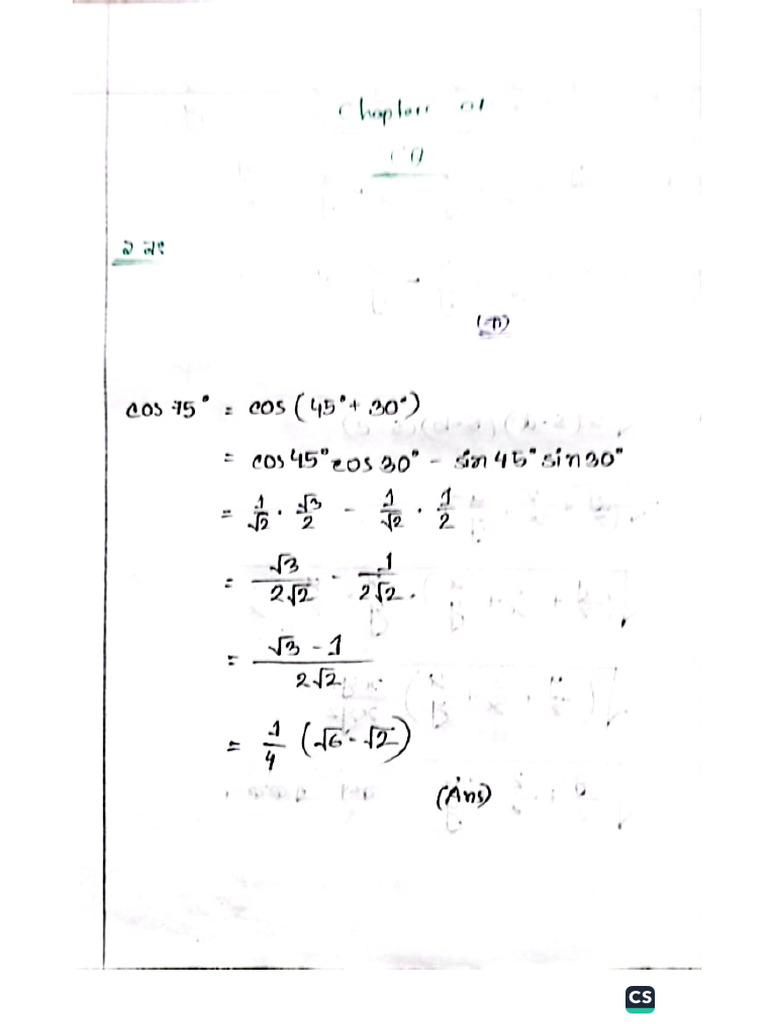 Chapter 01
CQ
২ নং
(ক)
cos 75° = cos (45° + 30°)
= cos 45° cos 30° - sin 45° sin 30°
= 1/√2 · √3/2 - 1/√2 · 1/2
= √3/2√2 - 1/2√2.
= √3 - 1/2√2
= 1/4 (√6 - √2)
(Ans)
CS